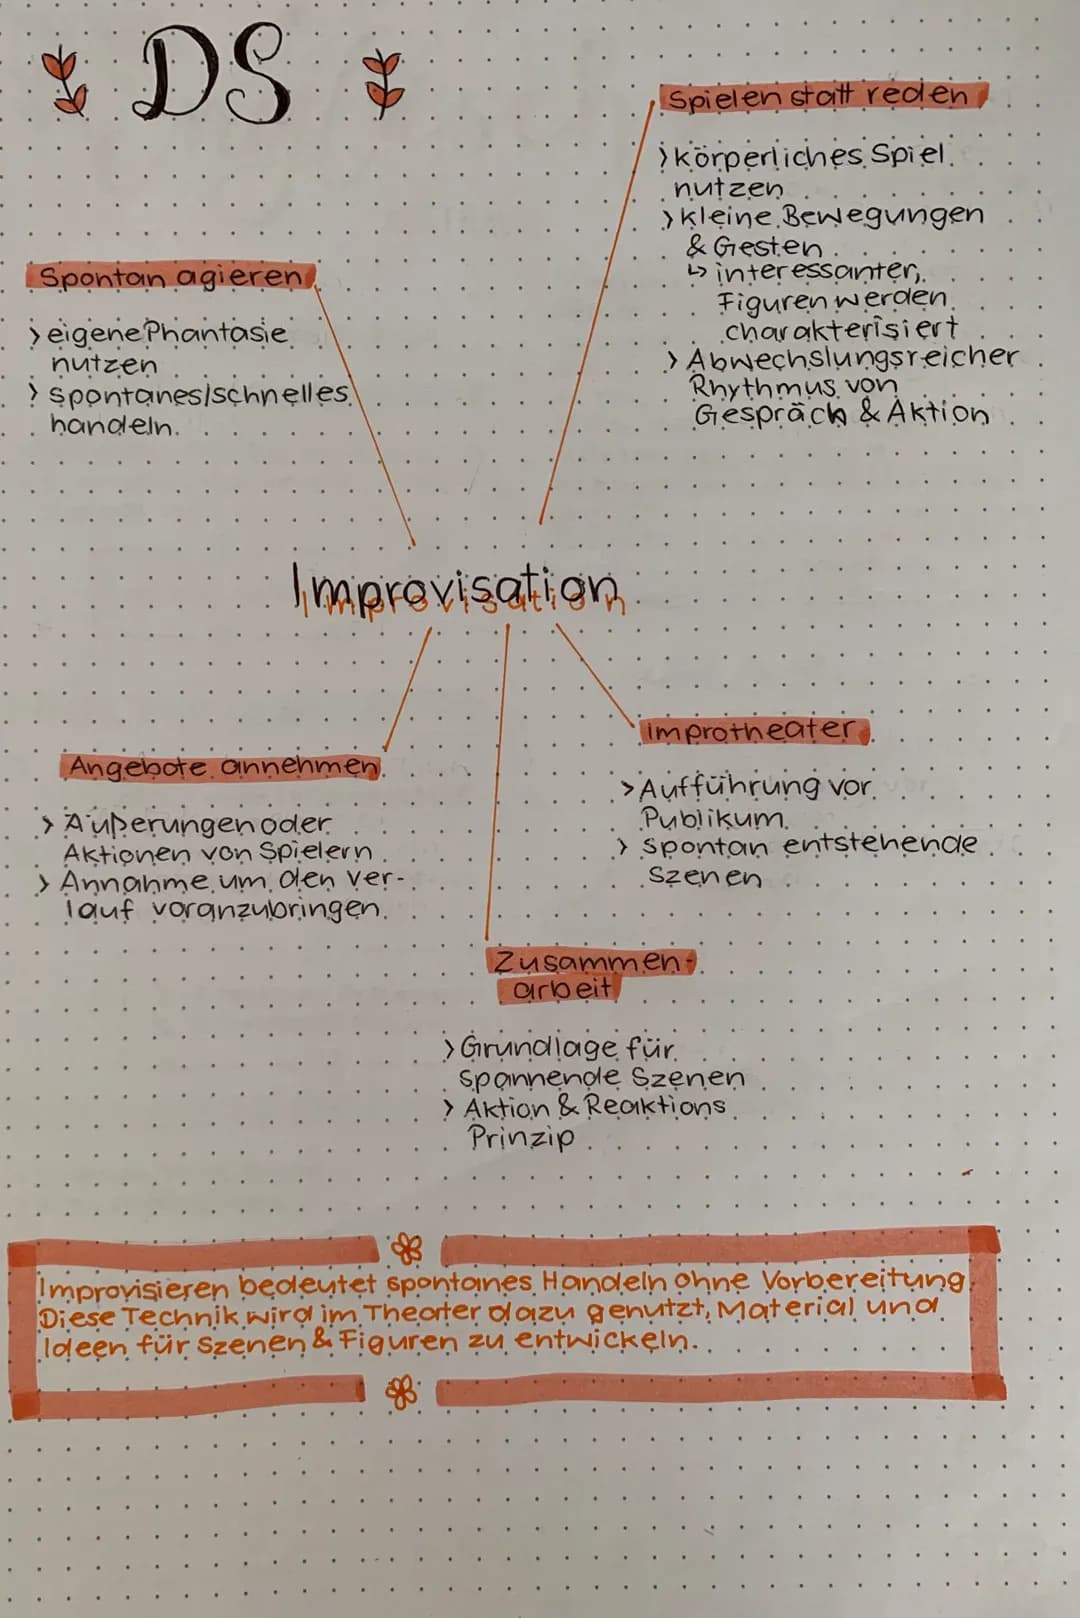 DS
Spielen statt reden
> körperliches Spiel
nutzen
> kleine Bewegungen
& Gesten
↳ interessanter,
Figuren werden
charakterisiert
> Abwechslungsreicher
Rhythmus von
Gespräch & Aktion
Spontan agieren
> eigene Phantasie
nutzen
> spontanes/schnelles
handeln
Improvisation
Angebote annehmen
> Äußerungen oder
Aktionen von Spielern
> Annahme um den Ver-
lauf voranzubringen
Improtheater
> Aufführung vor
Publikum
> spontan entstehende
Szenen
Zusammen-
arbeit
> Grundlage für
spannende Szenen
> Aktion & Reaktions
Prinzip
Improvisieren bedeutet spontanes Handeln ohne Vorbereitung.
Diese Technik wird im Theater dazu genutzt, Material und
Ideen für Szenen & Figuren zu entwickeln.